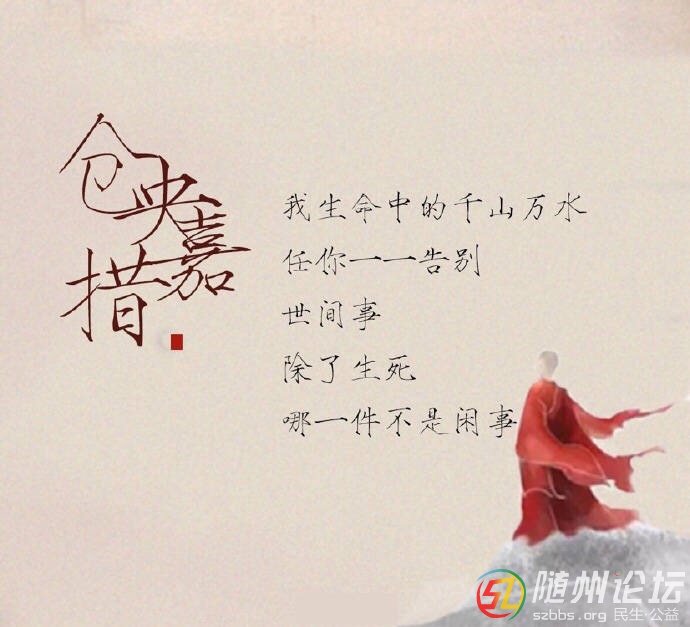 仓央嘉措
我生命中的千山万水
任你一一告别
世间事
除了生死
哪一件不是闲事
随州论坛
szbbs.org 民生·公益